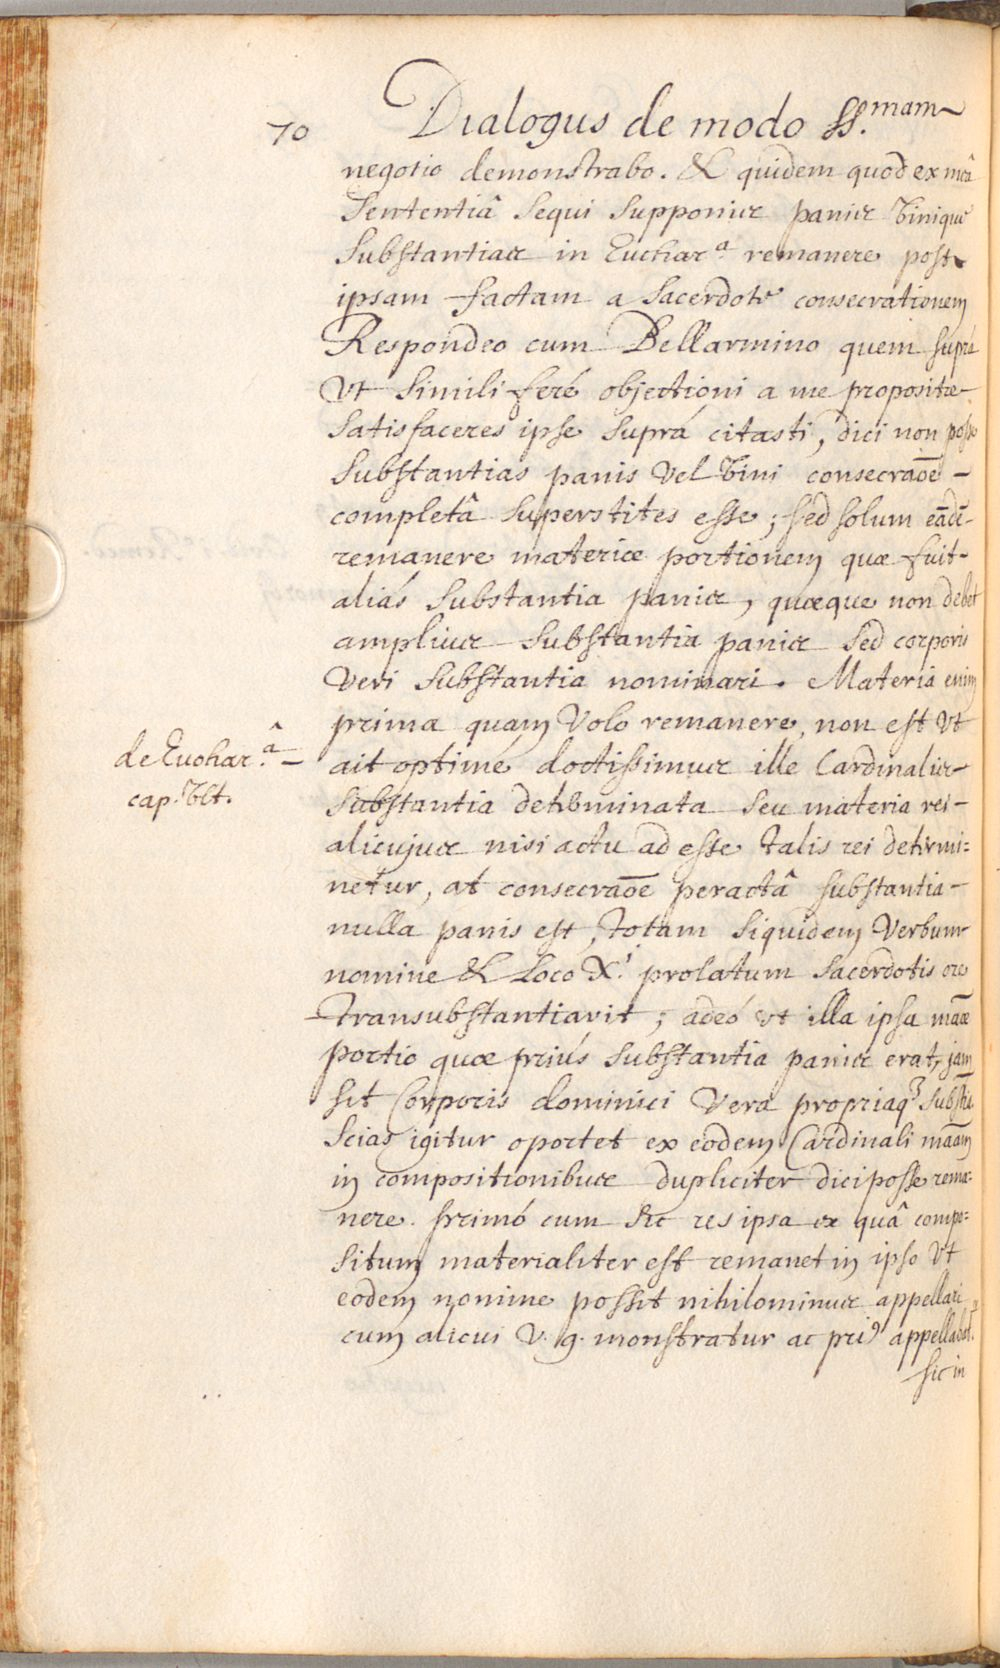 70
Dialogus de modo ss.mam
negotio demonstrabo. & quidem quod ex meâ
Sententiâ Sequi Supponis panis Vinique
Substantias in Euchar.a remanere post
ipsam factam a Sacerdote consecrationem
Respondeo cum Bellarmino quem suprá
Vt Simili feré objectioni a me propositæ
Satisfaceres ipse Suprá citasti, dici non posse
Substantias panis Vel Vini consecrãoe
completâ Superstites esse; sed solum eãdē
remanere materiæ portionem quæ fuit
aliás Substantia panis, quæque non debet
amplius Substantia panis Sed corporis
Veri Substantia nominari. Materia enim
prima quam Volo remanere, non est Vt
de Euchar.â
cap. Vlt.
ait optimé doctissimus ille Cardinalis
Substantia determinata Seu materia rei
alicujus nisi actu ad esse talis rei determi=
netur, at consecrãoe peractâ substantia
nulla panis est, totam Siquidem Verbum
nomine & Loco X.i prolatum Sacerdotis ore
Transubstantiavit; adeó vt illa ipsa mãæ
portio quæ priús Substantia panis erat, jam
sit Corporis dominici Vera propriaq3 Substia
Scias igitur oportet ex eodem Cardinali mãam
in compositionibus dupliciter dici posse rema:
nere. primó cum sic res ipsa ex quâ compo=
situm materialiter est remanet in ipso Vt
eodem nomine possit nihilominus appellari
cum alicui V. g. monstratur ac pri9 appellabat.r
sic in